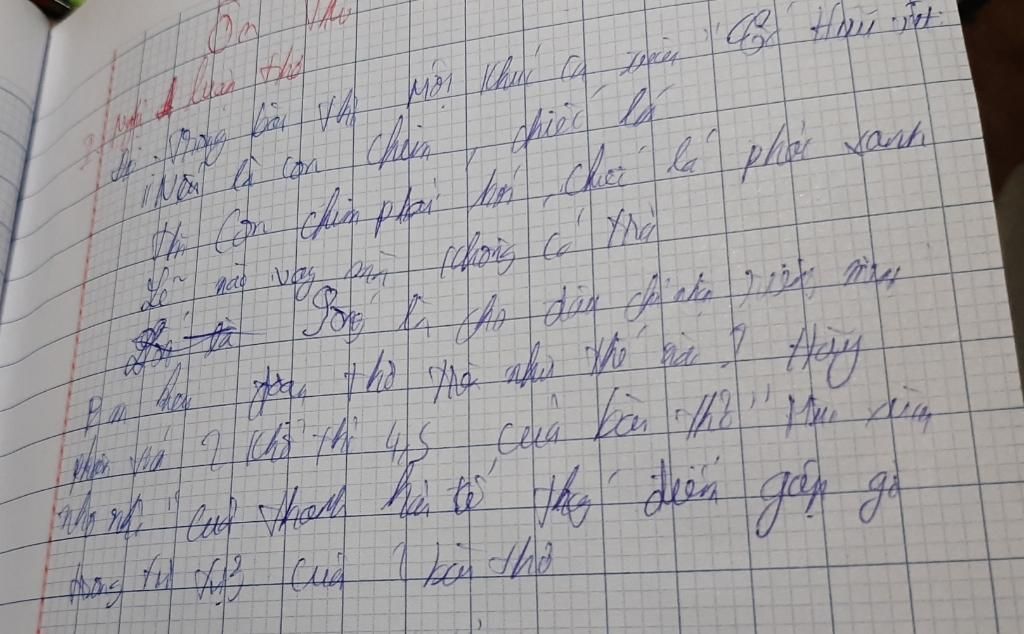 Ôn Thi
Nghị luận thơ
Trong bài thơ Một khúc ca xuân" của Tố Hữu viết
"Nếu là con chim, chiếc lá
Thì con chim phải hót, chiếc lá phải xanh
Lẽ nào vay mà không có trả
Sống là cho đâu chỉ nhận riêng mình
Em hiểu đoạn thơ trên như thế nào? Hãy
phân tích 2 khổ thơ 4,5 của bài thơ "Mùa xuân
nho nhỏ" của Thanh Hải để thấy điểm gặp gỡ
trong tư tưởng của 2 bài thơ